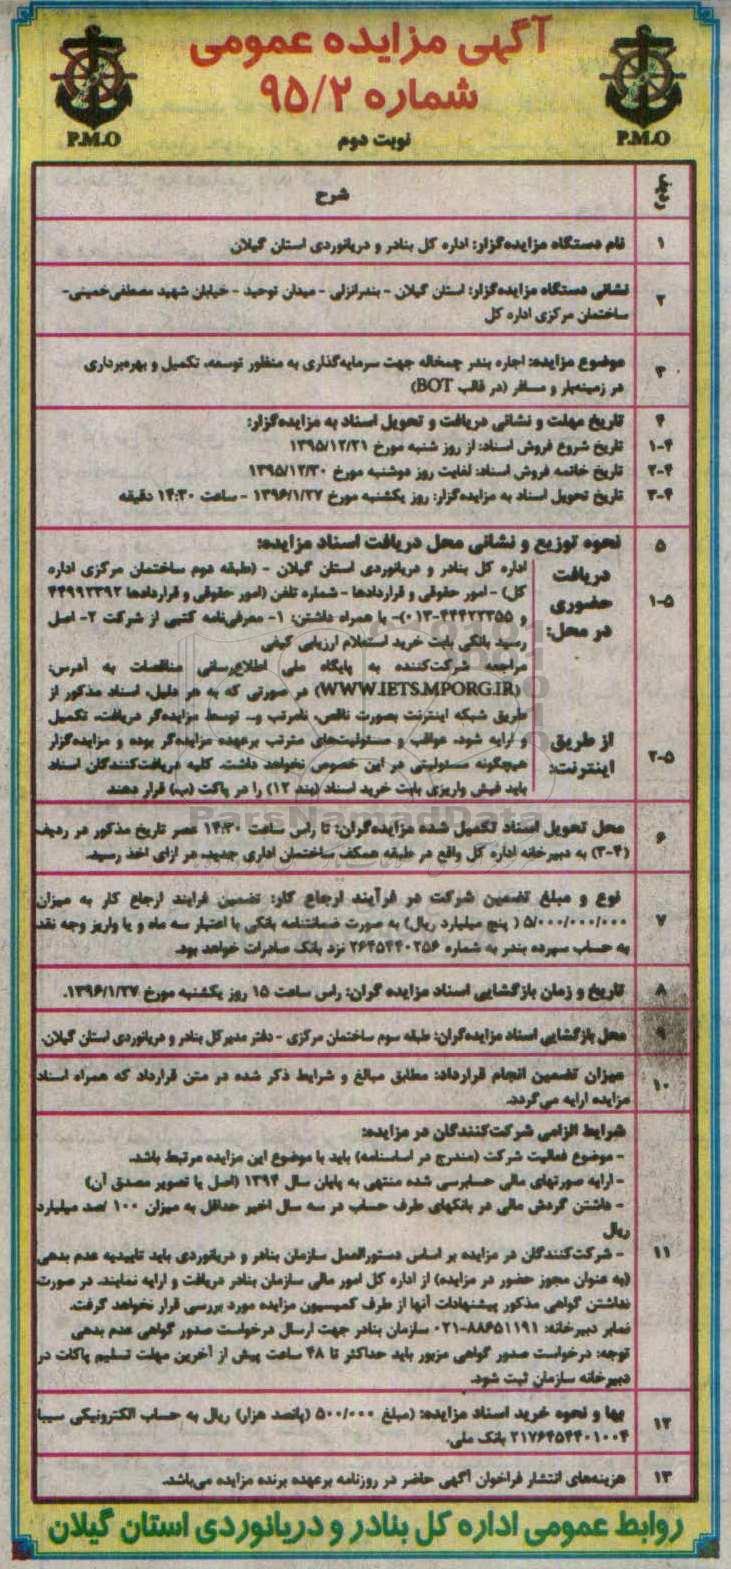 آگهی مزایده عمومی
شماره ۹۵/۲
نوبت دوم
P.M.O
P.M.O
ردیف
شرح
۱
نام دستگاه مزایده‌گزار: اداره کل بنادر و دریانوردی استان گیلان
۲
نشانی دستگاه مزایده‌گزار: استان گیلان - بندرانزلی - میدان توحید - خیابان شهید مصطفی‌خمینی-
ساختمان مرکزی اداره کل
۳
موضوع مزایده: اجاره بندر چمخاله جهت سرمایه‌گذاری به منظور توسعه، تکمیل و بهره‌برداری
در زمینه‌بار و مسافر (در قالب BOT)
۴
تاریخ مهلت و نشانی دریافت و تحویل اسناد به مزایده‌گزار:
۴-۱
تاریخ شروع فروش اسناد: از روز شنبه مورخ ۱۳۹۵/۱۲/۲۱
۴-۲
تاریخ خاتمه فروش اسناد: لغایت روز دوشنبه مورخ ۱۳۹۵/۱۲/۳۰
۴-۳
تاریخ تحویل اسناد به مزایده‌گزار: روز یکشنبه مورخ ۱۳۹۶/۱/۲۷ - ساعت ۱۴:۳۰ دقیقه
۵
نحوه توزیع و نشانی محل دریافت اسناد مزایده:
۵-۱
دریافت
حضوری
در محل:
اداره کل بنادر و دریانوردی استان گیلان - (طبقه دوم ساختمان مرکزی اداره
کل) - امور حقوقی و قراردادها - شماره تلفن (امور حقوقی و قراردادها ۴۴۹۹۲۳۹۲
و ۴۴۴۲۲۳۵۵-۰۱۳)- با همراه داشتن: ۱- معرفی‌نامه کتبی از شرکت ۲- اصل
رسید بانکی بابت خرید استعلام ارزیابی کیفی
۵-۲
از طریق
اینترنت:
مراجعه شرکت‌کننده به پایگاه ملی اطلاع‌رسانی مناقصات به آدرس:
(WWW.IETS.MPORG.IR) در صورتی که به هر دلیل، اسناد مذکور از
طریق شبکه اینترنت بصورت ناقص، نامرتب و... توسط مزایده‌گر دریافت، تکمیل
و ارایه شود، عواقب و مسئولیت‌های مترتب برعهده مزایده‌گر بوده و مزایده‌گزار
هیچگونه مسئولیتی در این خصوص نخواهد داشت. کلیه دریافت‌کنندگان اسناد
باید فیش واریزی بابت خرید اسناد (بند ۱۲) را در پاکت (ب) قرار دهند
ParsNamadData
۶
محل تحویل اسناد تکمیل شده مزایده‌گران: تا راس ساعت ۱۴:۳۰ عصر تاریخ مذکور در ردیف
(۴-۳) به دبیرخانه اداره کل واقع در طبقه همکف ساختمان اداری جدید، در ازای اخذ رسید.
۷
نوع و مبلغ تضمین شرکت در فرآیند ارجاع کار: تضمین فرایند ارجاع کار به میزان
۵/۰۰۰/۰۰۰/۰۰۰ ( پنج میلیارد ریال) به صورت ضمانتنامه بانکی با اعتبار سه ماه و یا واریز وجه نقد
به حساب سپرده بندر به شماره ۲۶۴۵۴۴۰۲۵۶ نزد بانک صادرات خواهد بود.
۸
تاریخ و زمان بازگشایی اسناد مزایده گران: راس ساعت ۱۵ روز یکشنبه مورخ ۱۳۹۶/۱/۲۷.
۹
محل بازگشایی اسناد مزایده‌گران: طبقه سوم ساختمان مرکزی - دفتر مدیرکل بنادر و دریانوردی استان گیلان.
۱۰
میزان تضمین انجام قرارداد: مطابق مبالغ و شرایط ذکر شده در متن قرارداد که همراه اسناد
مزایده ارایه می‌گردد.
۱۱
شرایط الزامی شرکت‌کنندگان در مزایده:
- موضوع فعالیت شرکت (مندرج در اساسنامه) باید با موضوع این مزایده مرتبط باشد.
- ارایه صورتهای مالی حسابرسی شده منتهی به پایان سال ۱۳۹۴ (اصل یا تصویر مصدق آن)
- داشتن گردش مالی در بانکهای طرف حساب در سه سال اخیر حداقل به میزان ۱۰۰ /صد میلیارد
ریال
- شرکت‌کنندگان در مزایده بر اساس دستورالعمل سازمان بنادر و دریانوردی باید تاییدیه عدم بدهی
(به عنوان مجوز حضور در مزایده) از اداره کل امور مالی سازمان بنادر دریافت و ارایه نمایند. در صورت
نداشتن گواهی مذکور پیشنهادات آنها از طرف کمیسیون مزایده مورد بررسی قرار نخواهد گرفت.
نمابر دبیرخانه: ۸۸۶۵۱۱۹۱-۰۲۱ سازمان بنادر جهت ارسال درخواست صدور گواهی عدم بدهی
توجه: درخواست صدور گواهی مزبور باید حداکثر تا ۴۸ ساعت پیش از آخرین مهلت تسلیم پاکات در
دبیرخانه سازمان ثبت شود.
۱۲
بها و نحوه خرید اسناد مزایده: (مبلغ ۵۰۰/۰۰۰ (پانصد هزار) ریال به حساب الکترونیکی سیبا
۲۱۷۶۴۵۴۴۰۱۰۰۴ بانک ملی.
۱۳
هزینه‌های انتشار فراخوان آگهی حاضر در روزنامه برعهده برنده مزایده می‌باشد.
روابط عمومی اداره کل بنادر و دریانوردی استان گیلان